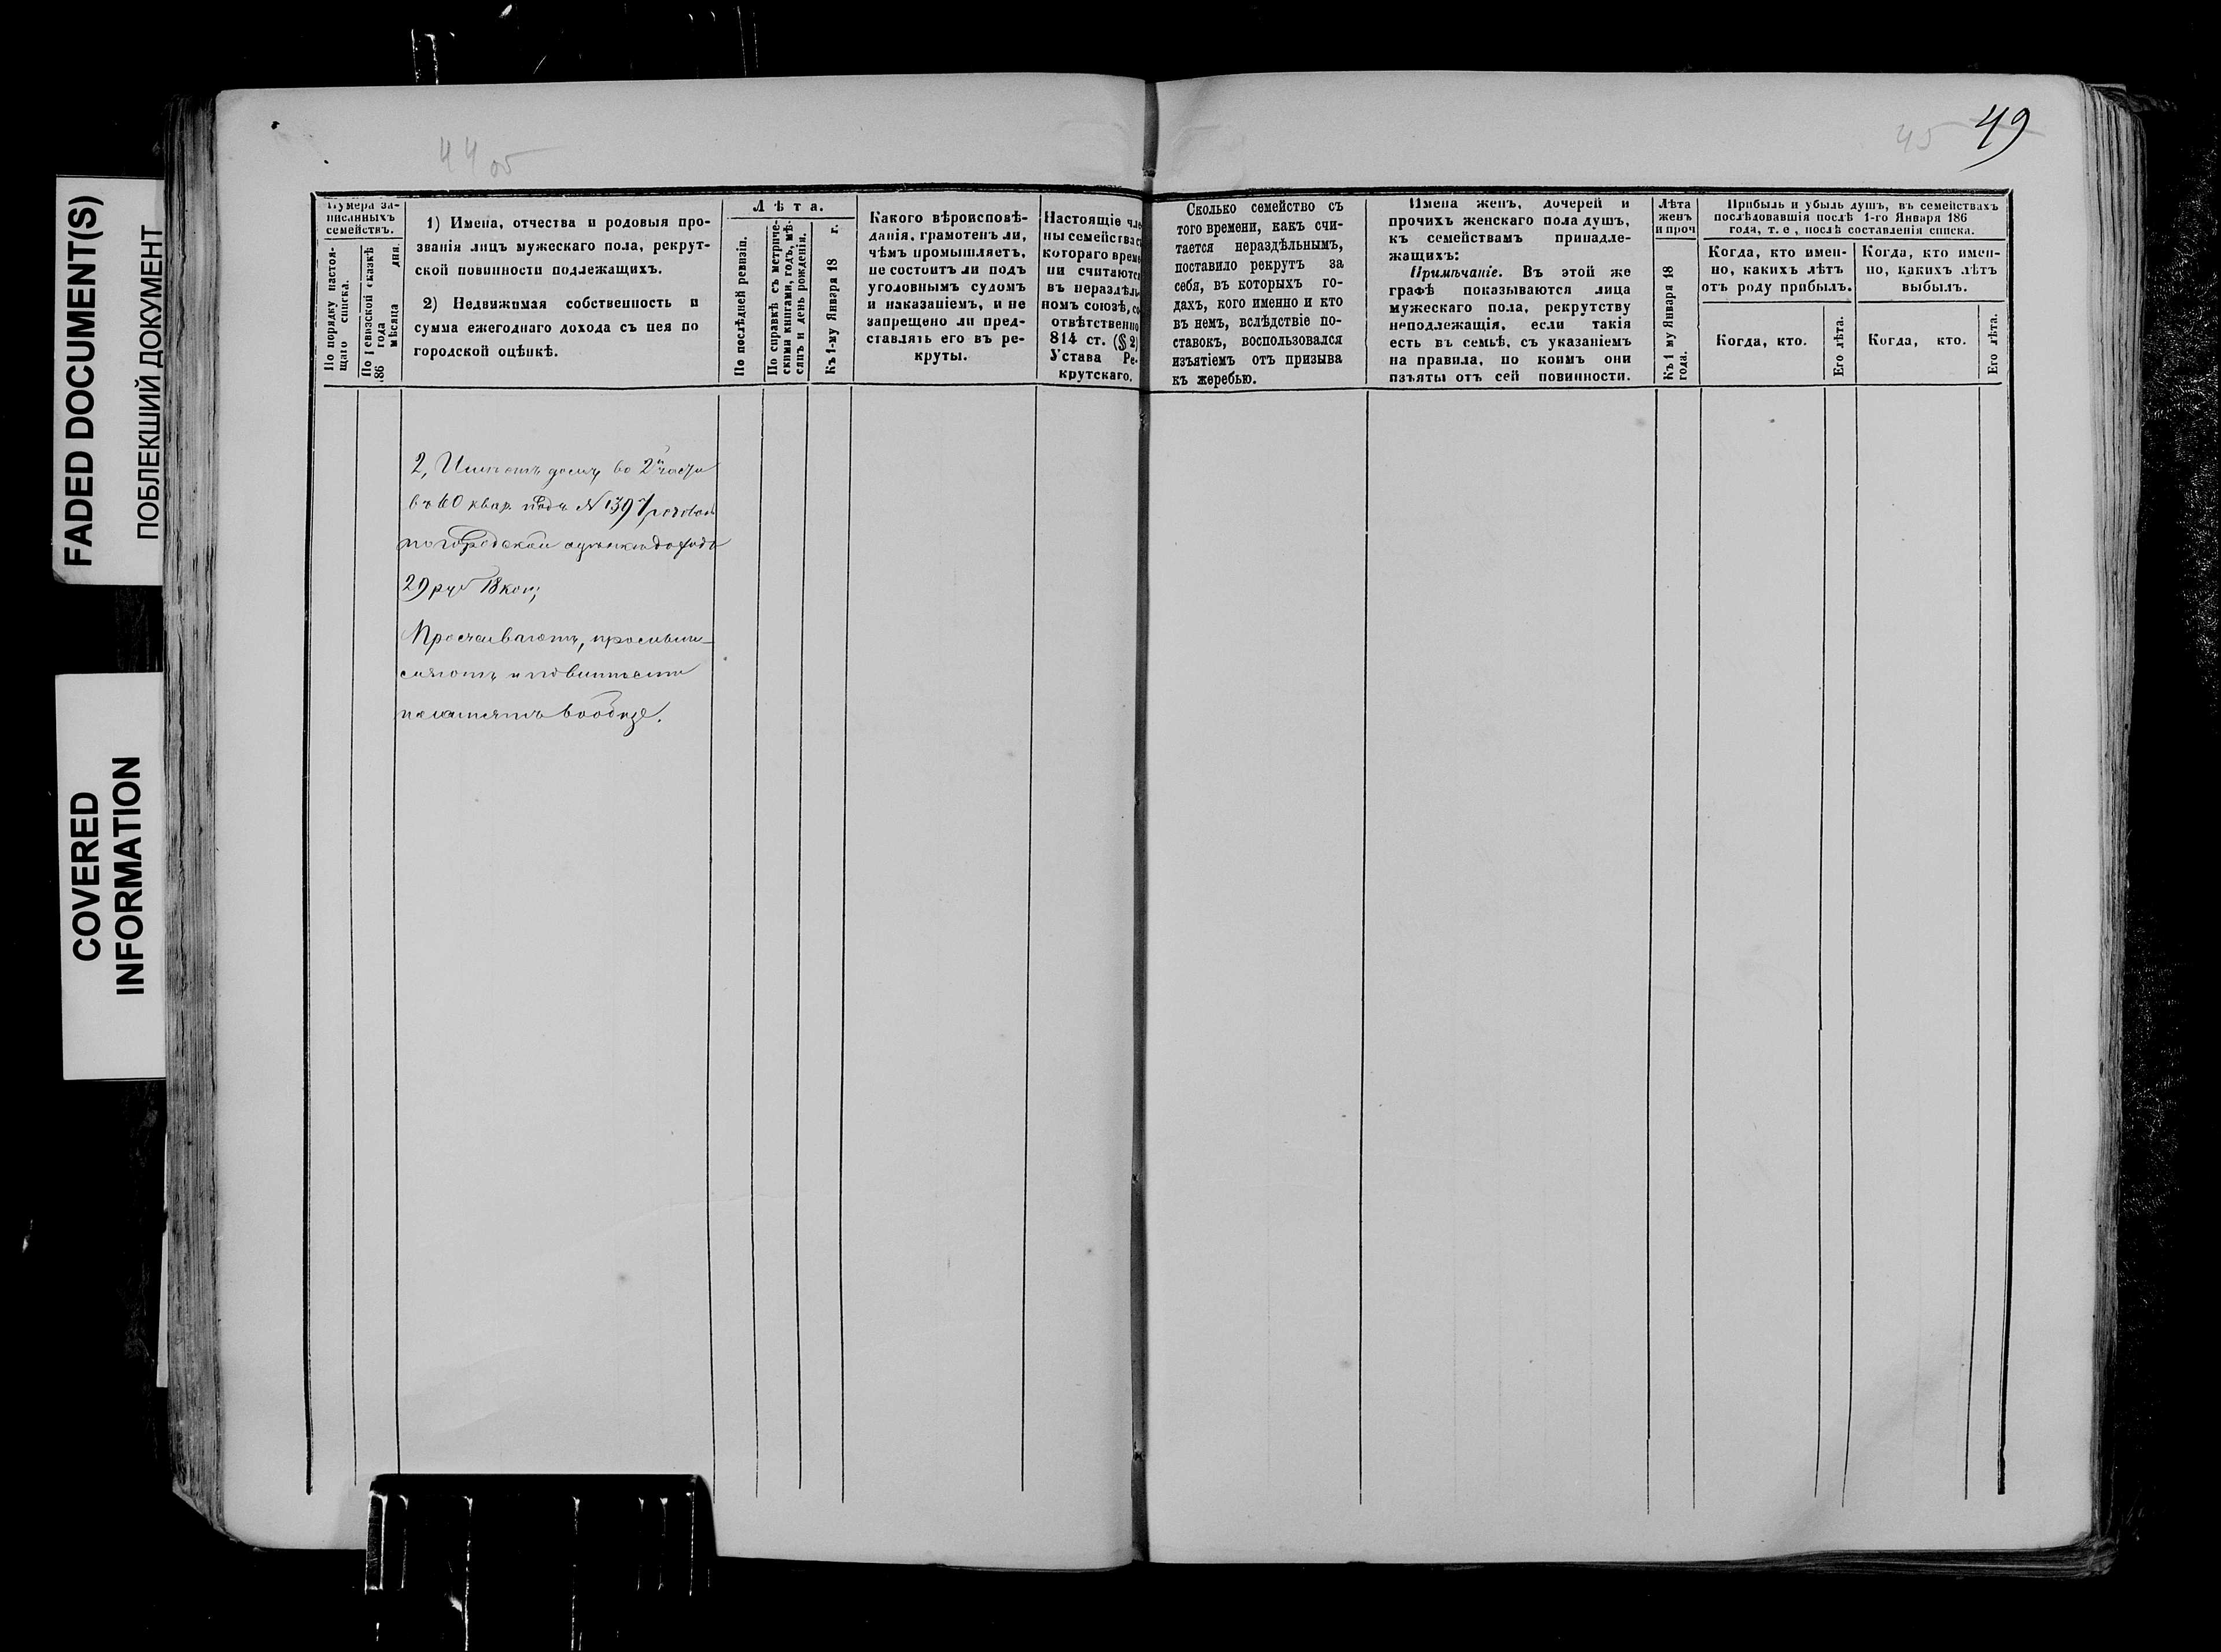 FADED DOCUMENT(S)
ПОБЛЕКШИЙ ДОКУМЕНТ
COVERED
INFORMATION
44 об
Нумера за-
писанныхъ
семействъ.
По порядку настоя-
щаго списка.
По ревизской сказкѣ
186 года
мѣсяца дня.
1) Имена, отчества и родовыя про-
званія лицъ мужескаго пола, рекрут-
ской повинности подлежащихъ.
2) Недвижимая собственность и
сумма ежегоднаго дохода съ нея по
городской оцѣнкѣ.
Лѣта.
По послѣдней ревизіи.
По справкѣ съ метриче-
скими книгами, годъ, мѣ-
сяцъ и день рожденія.
Къ 1-му Января 18 г.
Какого вѣроисповѣ-
данія, грамотенъ ли,
чѣмъ промышляетъ,
не состоитъ ли подъ
уголовнымъ судомъ
и наказаніемъ, и не
запрещено ли пред-
ставлять его въ ре-
круты.
Настоящіе чле
ны семейства с
котораго време
ни считаются
въ нераздѣль
номъ союзѣ, со
отвѣтственно
814 ст. (§ 2)
Устава Ре-
крутскаго.
2, Имѣютъ домъ во 2й части
въ 60 квар. подъ № 1397
по городской оцѣнки дохода
29 руб 18 коп;
Проживаютъ, промыш-
ляютъ и повинности
платятъ вообще.
45 49
Сколько семейство съ
того времени, какъ счи-
тается нераздѣльнымъ,
поставило рекрутъ за
себя, въ которыхъ го-
дахъ, кого именно и кто
въ немъ, вслѣдствіе по-
ставокъ, воспользовался
изъятіемъ отъ призыва
къ жеребью.
Имена женъ, дочерей и
прочихъ женскаго пола душъ,
къ семействамъ принадле-
жащихъ:
Примѣчаніе. Въ этой же
графѣ показываются лица
мужескаго пола, рекрутству
неподлежащія, если такія
есть въ семьѣ, съ указаніемъ
на правила, по коимъ они
изъяты отъ сей повинности.
Лѣта
женъ
и проч
Къ 1 му Января 18
года.
Прибыль и убыль душъ, въ семействахъ
послѣдовавшія послѣ 1-го Января 186
года, т. е., послѣ составленія списка.
Когда, кто имен-
но, какихъ лѣтъ
отъ роду прибылъ.
Когда, кто.
Его лѣта.
Когда, кто имен-
но, какихъ лѣтъ
выбылъ.
Когда, кто.
Его лѣта.